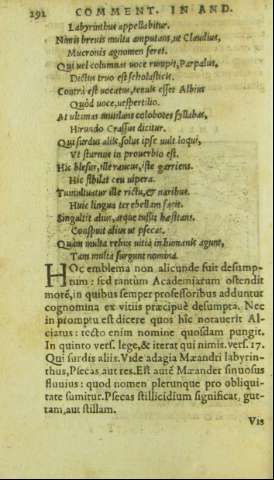 292 COMMENT. IN AND.
Labyrinthus appellabitur.
Nimis brevis multa amputans, ut Claudius,
Mucronis agnomen feret.
Qui vel columnas voce rumpit, Parpalus,
Dictus truo est scholasticis.
Contrà est vocatus, tenuis esset Albius
Quòd voce, vespertilio.
At ultimas mutilans colobotes syllabas,
Hirundo Crassus dicitur.
Qui surdus aliis, solus ipse vult loqui,
Vt sturnus in proverbio est.
Hic blesus, ille raucus, iste garriens.
Hic sibilat ceu vipera.
Tumultuatur ille rictu, & naribus.
Huic lingua terebellam facit.
Singultit alius, atque tussit hæsitans.
Conspuit alius ut psecas.
Quàm multa rebus vitia inhumanis agunt,
Tam multa surgunt nomina.
HOc emblema non alicunde fuit desump-
tum: sed tantum Academiarum ostendit
morẽ, in quibus semper professoribus adduntur
cognomina ex vitiis præcipuè desumpta. Nec
in promptu est dicere quos hîc notauerit Al-
ciatus: tecto enim nomine quosdam pungit.
In quinto vers. lege, & iterat qui nimis. vers. 17.
Qui surdis aliis. Vide adagia Mæandri labyrin-
thus, Psecas aut res. Est autẽ Mæander sinuosus
fluuius: quod nomen plerunque pro obliqui-
tate sumitur. Psecas stillicidium significat, gut-
tam, aut stillam.
Vis